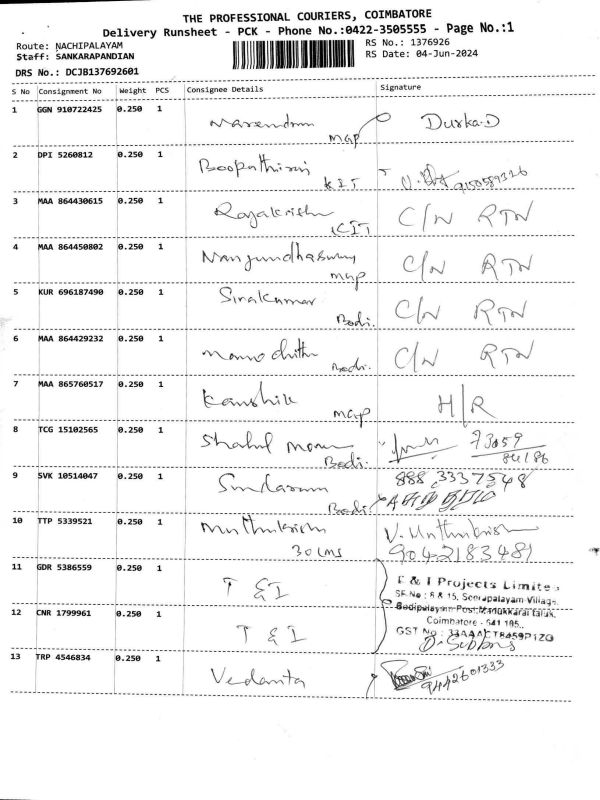 THE PROFESSIONAL COURIERS, COIMBATORE
Delivery Runsheet - PCK - Phone No.:0422-3505555 - Page No.:1
Route: NACHIPALAYAM
RS No.: 1376926
Staff: SANKARAPANDIAN
RS Date: 04-Jun-2024
DRS No.: DCJB137692601
S No Consignment No Weight PCS Consignee Details Signature
1 GGN 910722425 0.250 1 Narendran Durka.D
map
2 DPI 5260812 0.250 1 Boopathiraj
KIT 9150589326
3 MAA 864430615 0.250 1 Rajakrishn C/N RTN
KIT
4 MAA 864450802 0.250 1 Nanjundhaswamy C/N RTN
map
5 KUR 696187490 0.250 1 Sivakumar C/N RTN
Bodi.
6 MAA 864429232 0.250 1 C/N RTN
Bodi.
7 MAA 865760517 0.250 1 Kaushik H/R
map
8 TCG 15102565 0.250 1 Shahul 73059
Bodi. 84186
9 SVK 10514047 0.250 1 Sundaram 888 3337548
Bodi
10 TTP 5339521 0.250 1 Muthukrishn V. Muthukrishn
30 cms 9042183481
11 GDR 5386559 0.250 1 T & I
T & I Projects Limited
SF.No : 8 & 15, Seerapalayam Village,
12 CNR 1799961 0.250 1 T & I
Bodipalayam Post, Madukkarai Taluk,
Coimbatore - 641 105.
GST No : 33AAACT8459P1ZG
13 TRP 4546834 0.250 1 Vedanta 9442601333